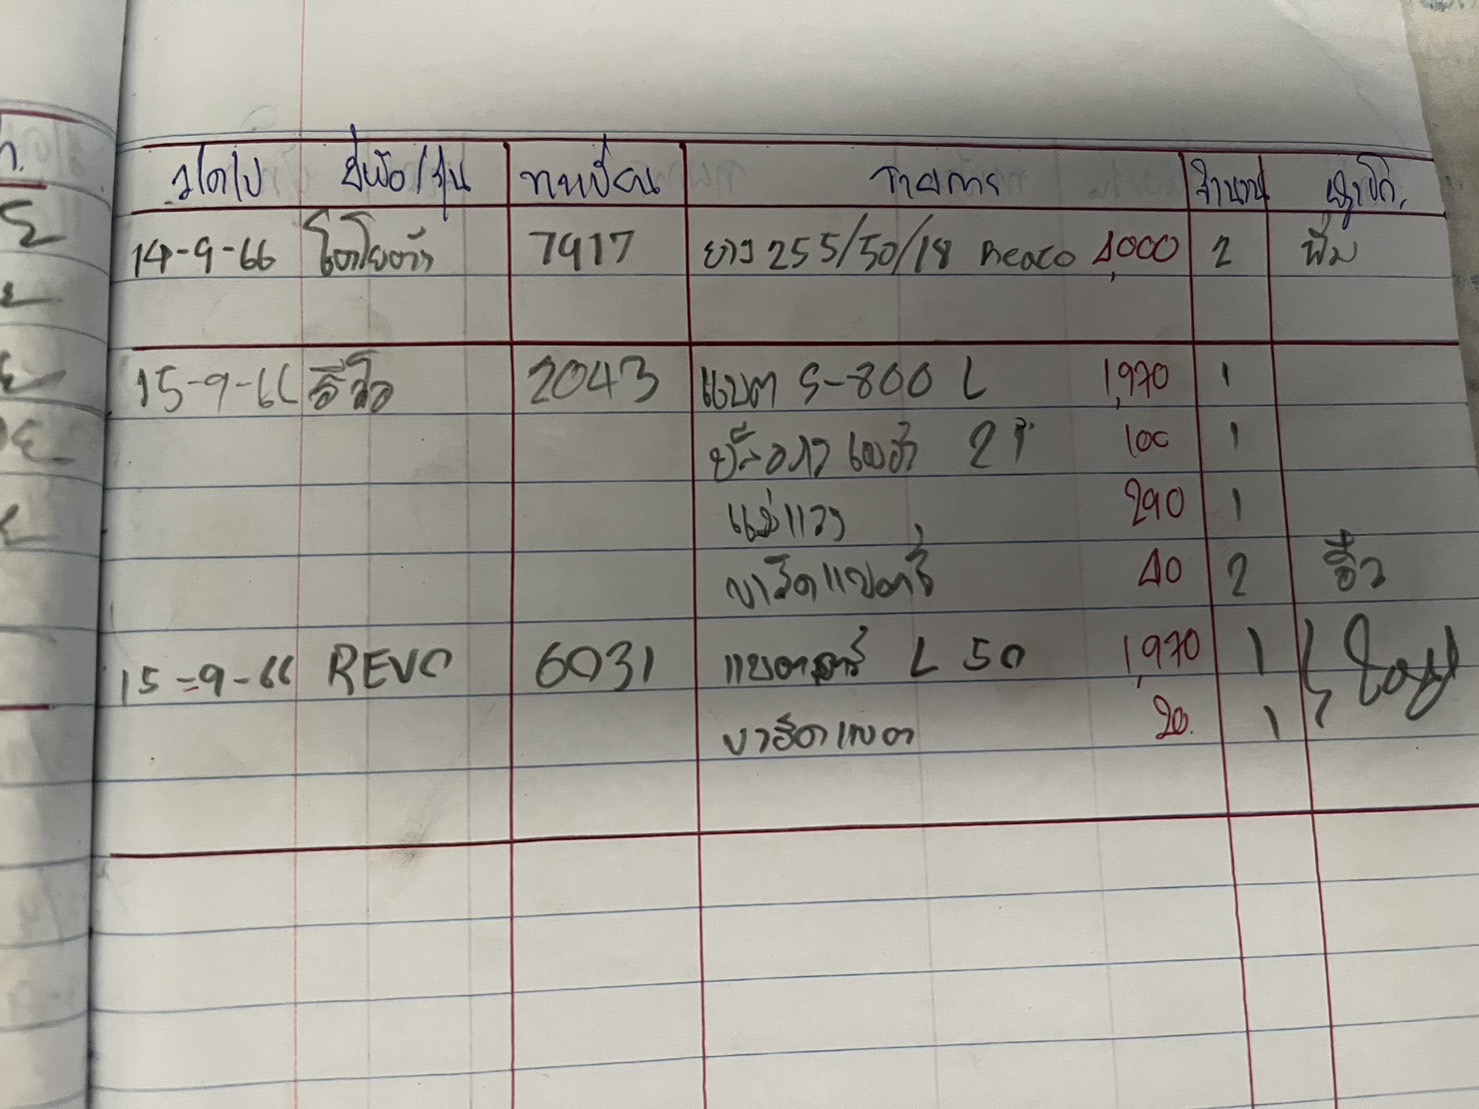 ว/ด/ป ยี่ห้อ/รุ่น ทะเบียน รายการ จำนวน ผู้เบิก.
14-9-66 โตโยต้า 7917 ยาง 255/50/18 4,000 2 ฟิม
15-9-66 อีซูซุ 2043 แบต S-800 L 1,970 1
2 100 1
แม่แรง 290 1
ขารัดแบตตารี่ 40 2 อิ๋ว
15-9-66 REVO 6031 แบตเตอรี่ L 50 1,970 1
ขารัดแบต 20. 1